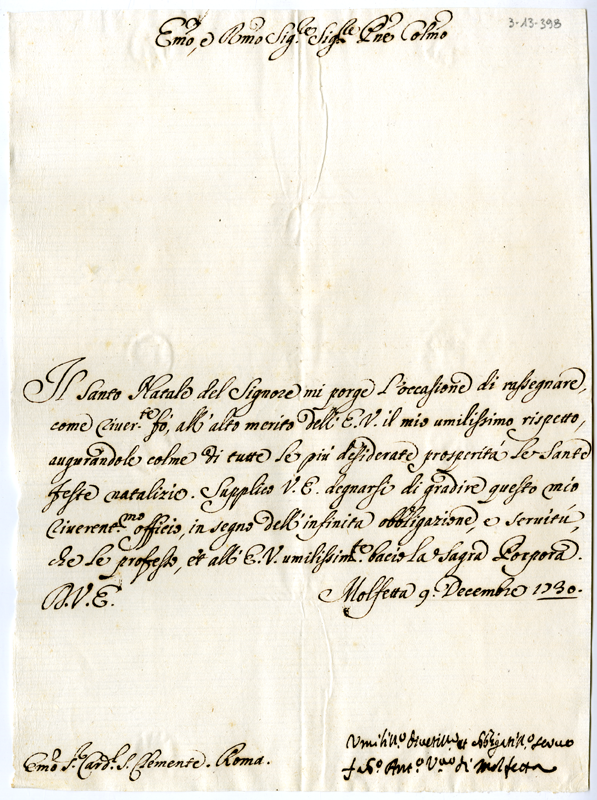 3-13-398
Emo, e Rmo Sig.re Sig.re Pne Colmo
Il Santo Natale del Signore mi porge l'occasione di rassegnare,
come river.te fò, all'alto merito dell'E.V. il mio umilissimo rispetto,
augurandole colme di tutte le più desiderate prosperità le Sante
feste natalizie. Supplico V.E. degnarsi di gradire questo mio
riverent.mo officio, in segno dell'infinita obbligazione, e servitù,
che le professo, et all'E.V. umilissim.te bacio la Sagra Porpora.
D.V.E. Molfetta 9. Decembre 1730.
Umiliss.o Divotiss.o et Obligatiss.o servo
Emo S.r Card.l S. Clemente. Roma. + Fab.o Ant.o V.vo di Molfetta